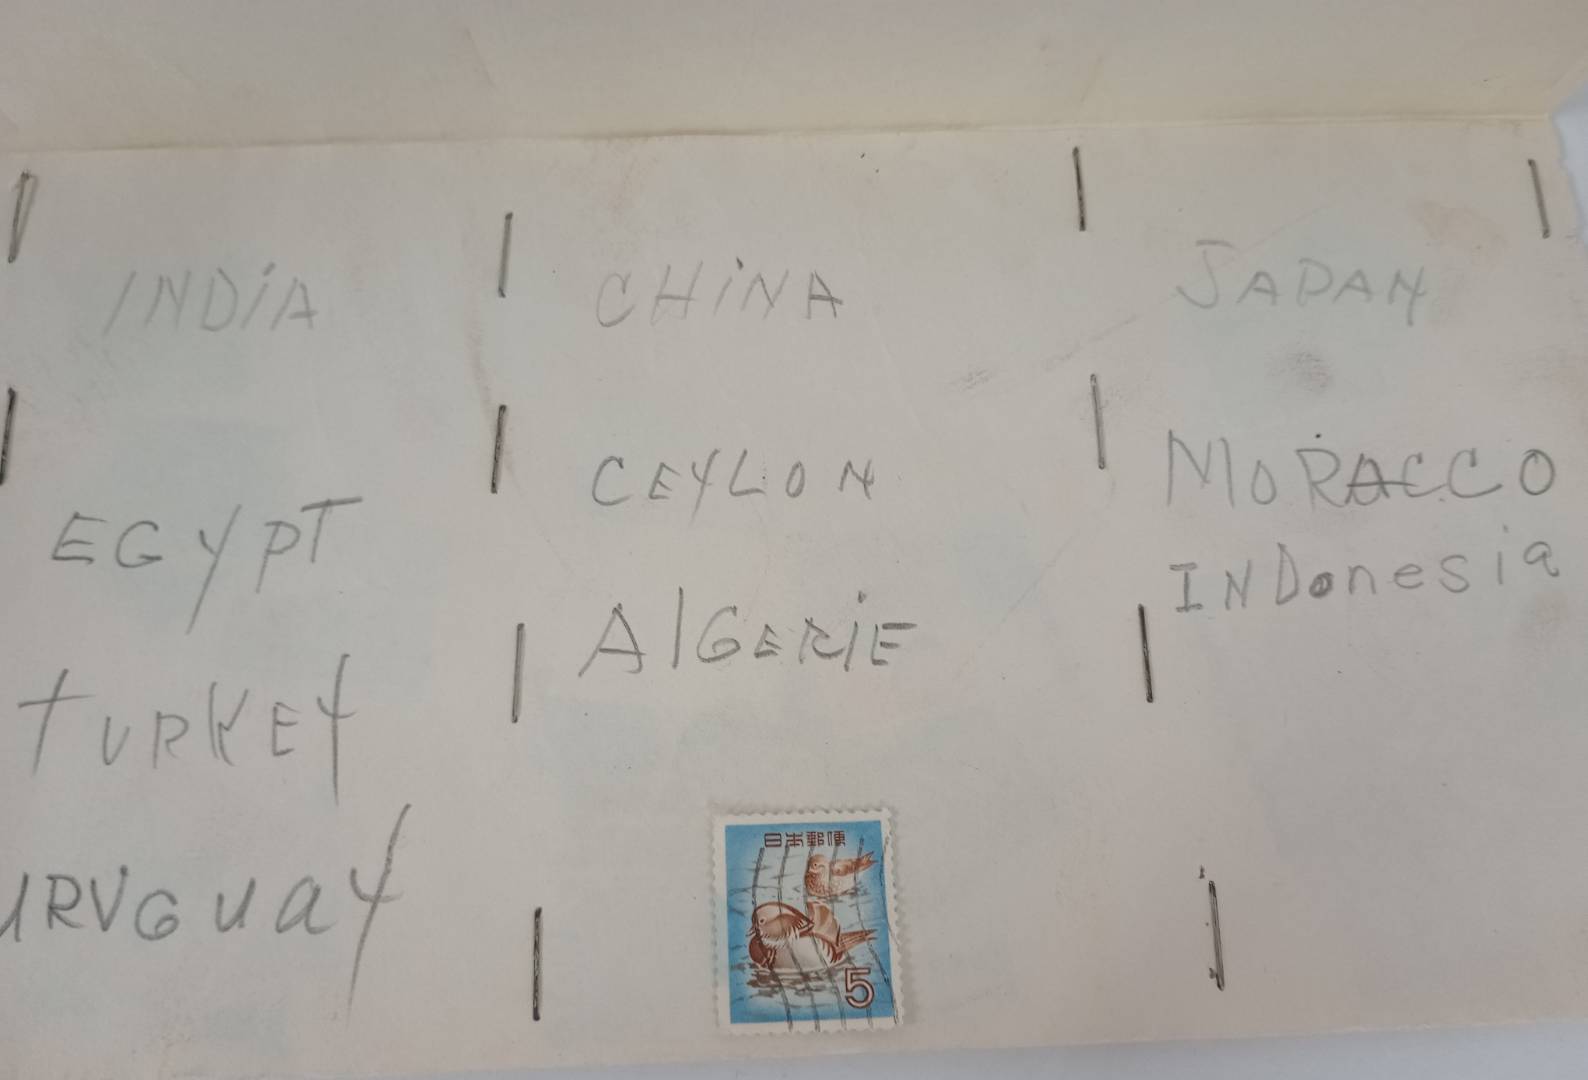 INDiA
CHiNA
JAPAN
CEYLON
MORACCO
EGYPT
INDonesia
AlGERiE
TURKEY
URUGUAY
日本郵便
5